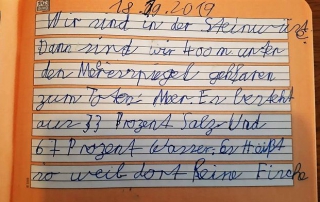 18.10.2019
Wir sind in der Steinwüst.
Dann sind wir 400m unter
den Meresspiegel gefharen
zum Toten Meer. Er besteht
aus 33 Prozent Salz und
67 Prozent Wasser. Er Haißt
so weil dort keine Firche